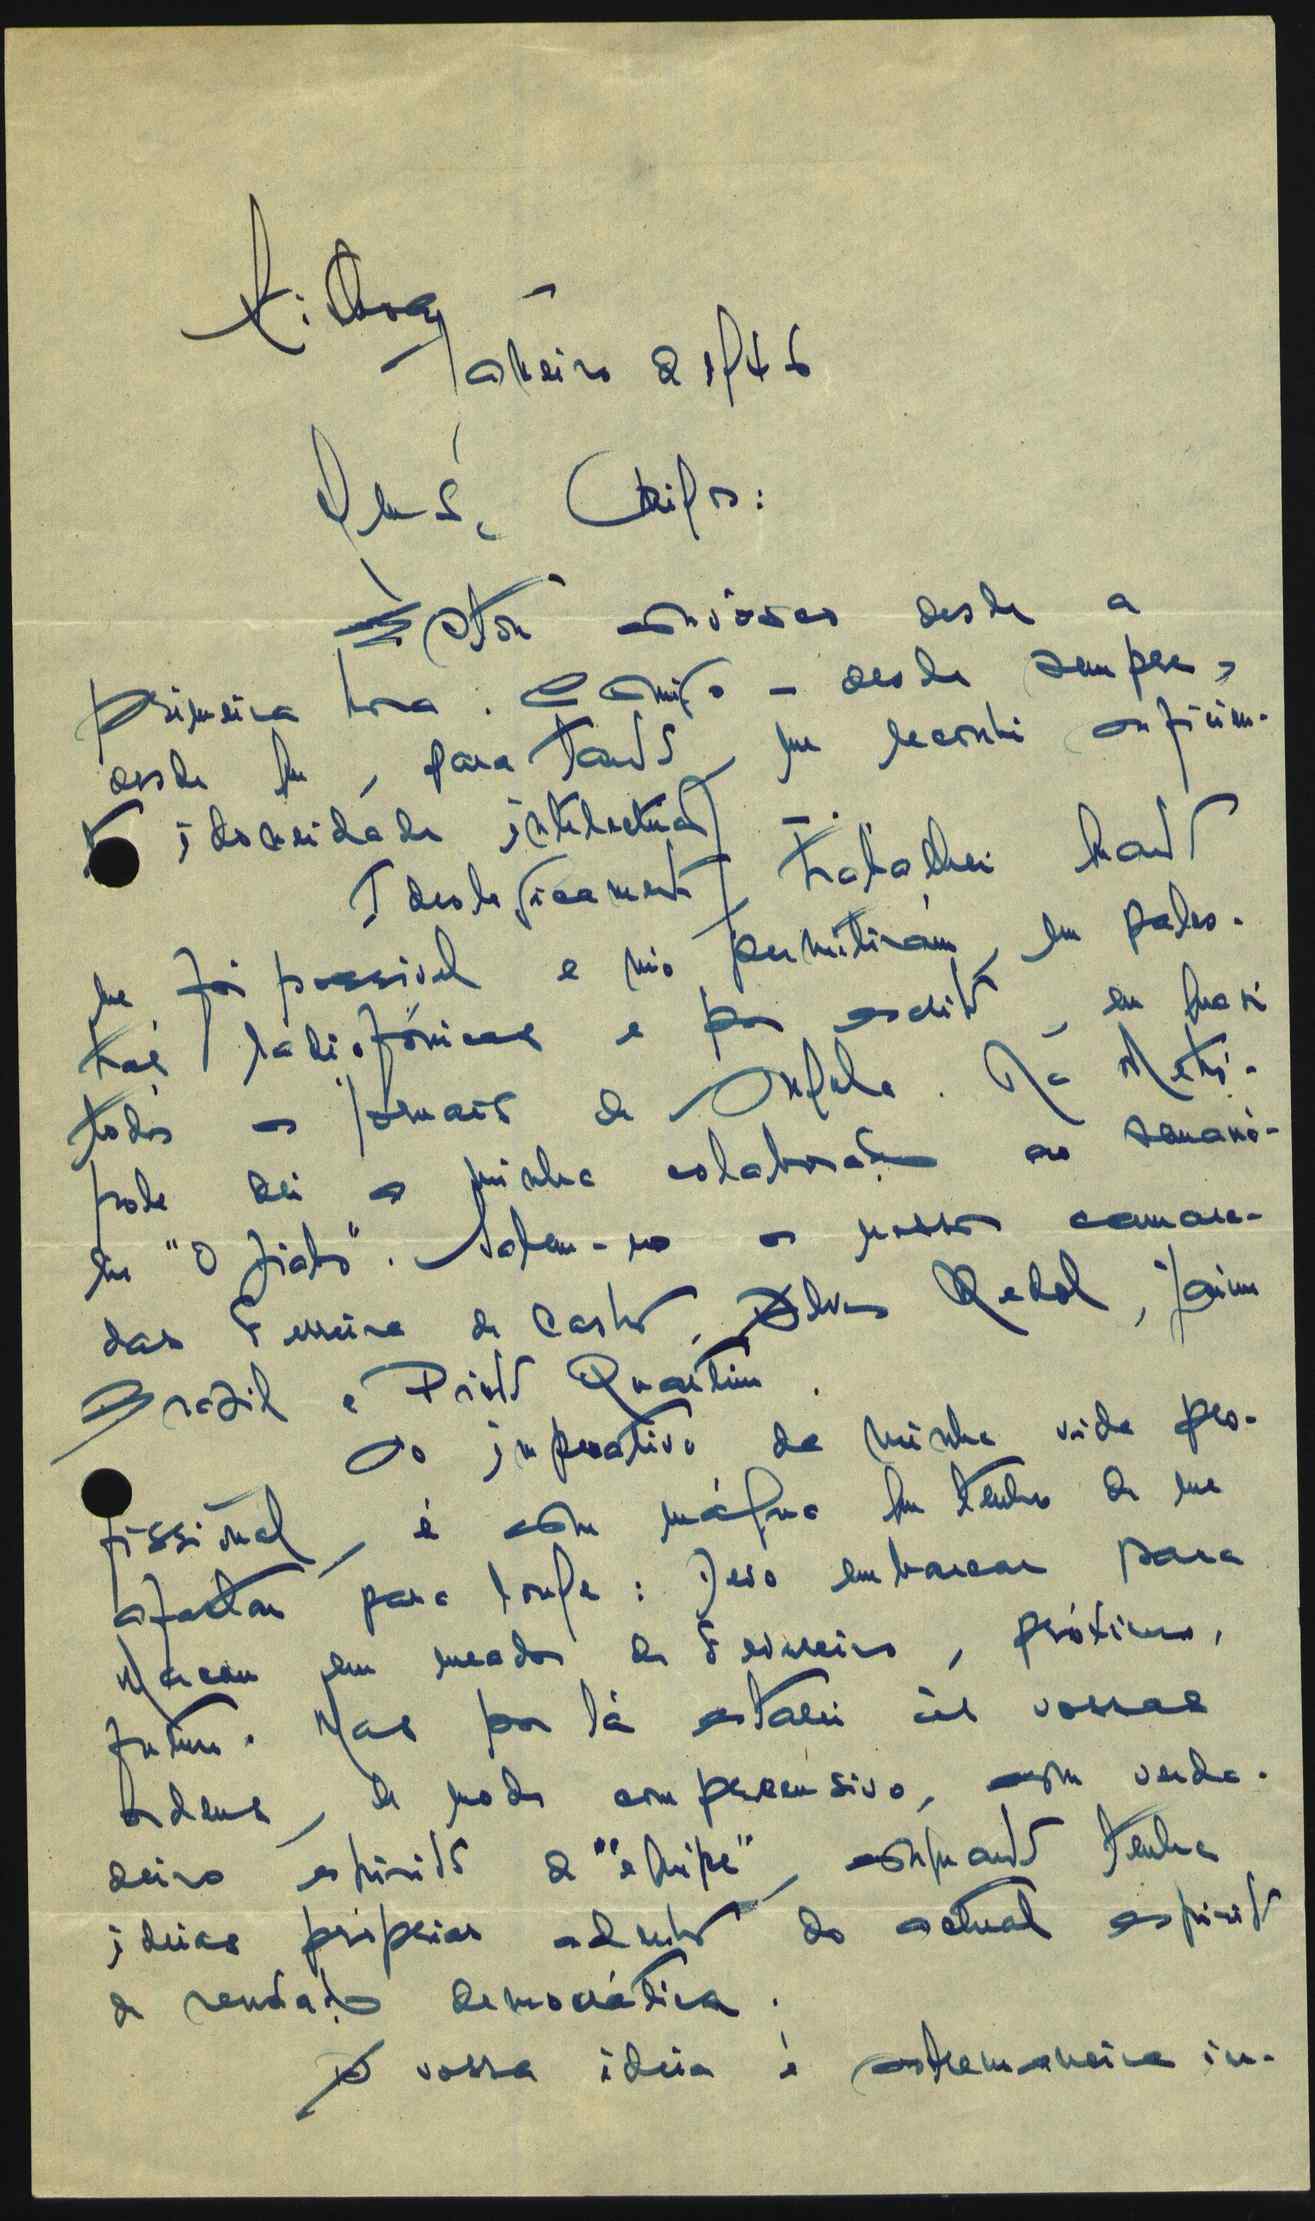 Lisboa,
Janeiro 2 1946
Amigo:
Estou convosco desde a
primeira hora. E comigo - desde sempre,
desde que, para tanto, me reconheci suficien-
te idoneidade intelectual -.
Ideologicamente, trabalhei quanto
me foi possivel e mo permitiram, em pales-
tras radiofónicas e por escrito, em quasi
todos os jornais de Angola. Na Metró-
pole dei a minha colaboração ao semaná-
rio "O Diabo". Sabem-no os nossos camara-
das Ferreira de Castro, Alves Redol, Jaime
Brasil e Pinto Quartim.
Ao imperativo da minha vida pro-
fissional, é com mágua que tenho de me
afastar para longe: Devo embarcar para
Macau em meados de Fevereiro, próximo,
futuro. Mas por lá estarei às vossas
ordens, de modo compreensivo, com verda-
deiro espirito de "equipe", conquanto tenha
ideias próprias adentro do actual espirito
de renovação democrática.
A vossa ideia é extremaneira in-